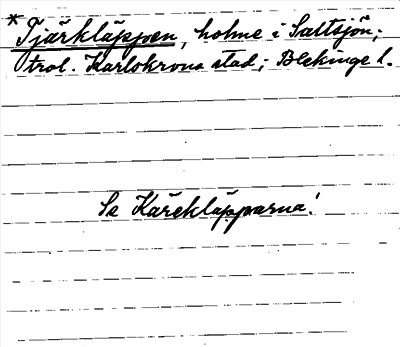 * Tjärkläppen, holme i Saltsjön;
trol. Karlskrona stad; Blekinge l.
Se Karekläpparna!